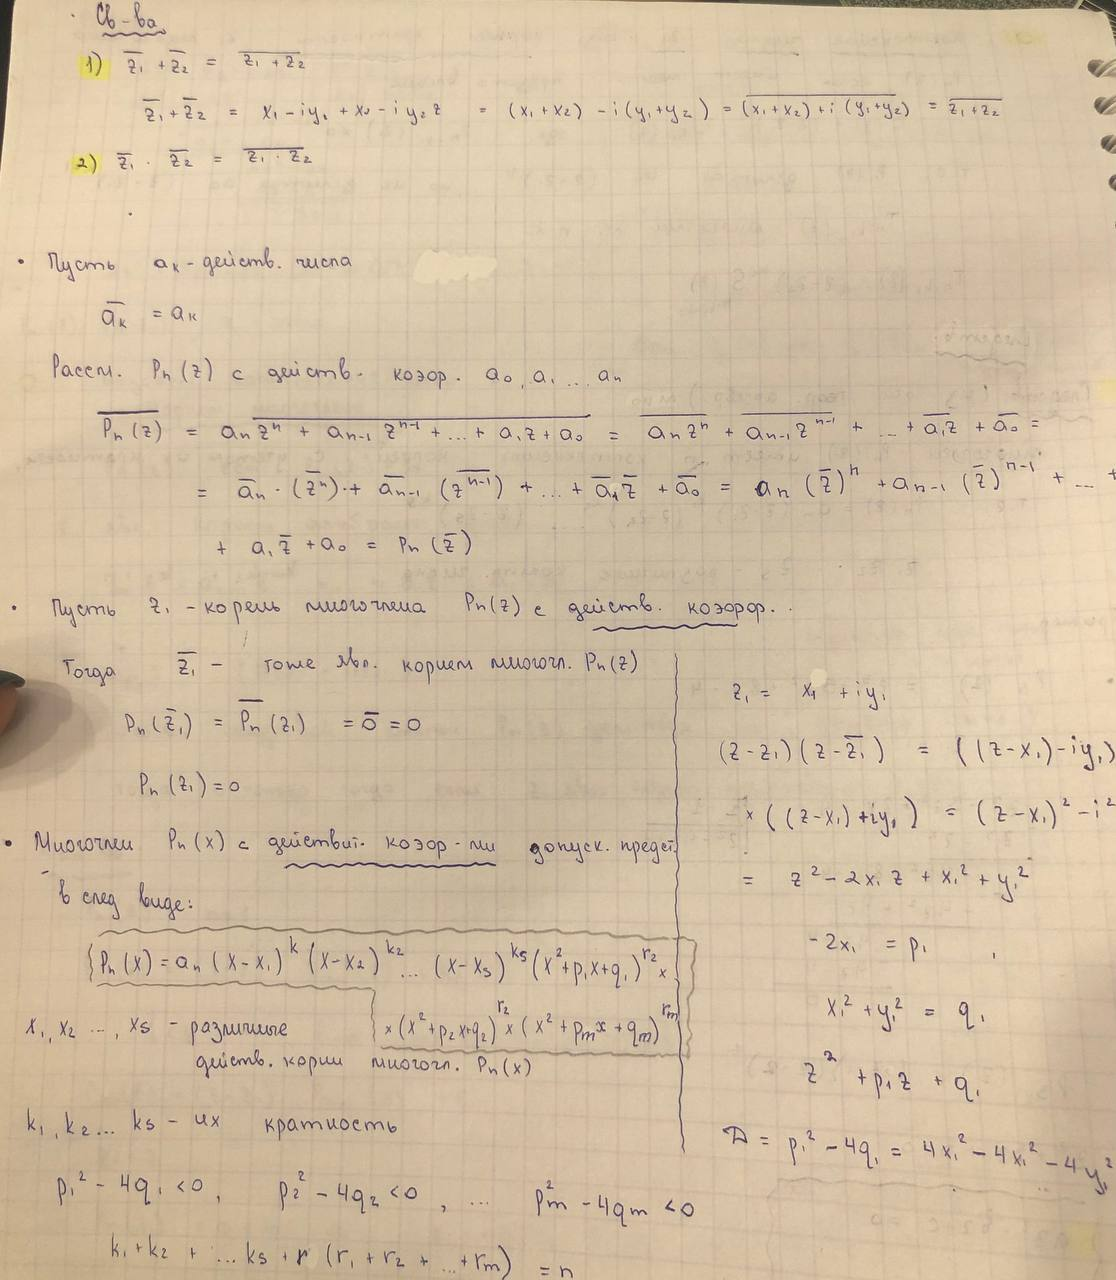 Св-ва
1) z̅₁ + z̅₂ = \overline{z₁ + z₂}
z̅₁ + z̅₂ = x₁ - iy₁ + x₂ - iy₂ z = (x₁+x₂) - i(y₁+y₂) = \overline{(x₁+x₂)+i(y₁+y₂)} = \overline{z₁+z₂}
2) z̅₁ · z̅₂ = \overline{z₁ · z₂}
• Пусть aₖ - действ. числа
a̅ₖ = aₖ
Рассм. Pₙ(z) с действ. коэф. a₀, a₁ ... aₙ
\overline{Pₙ(z)} = \overline{aₙzⁿ + aₙ₋₁zⁿ⁻¹ + ... + a₁z + a₀} = \overline{aₙzⁿ} + \overline{aₙ₋₁zⁿ⁻¹} + ... + \overline{a₁z} + a̅₀ =
= a̅ₙ · (\overline{zⁿ}) + a̅ₙ₋₁ (\overline{zⁿ⁻¹}) + ... + a̅₁z̅ + a̅₀ = aₙ(z̅)ⁿ + aₙ₋₁(z̅)ⁿ⁻¹ + ... +
+ a₁z̅ + a₀ = Pₙ(z̅)
• Пусть z₁ - корень многочлена Pₙ(z) с действ. коэфф.
Тогда z̅₁ - тоже явл. корнем многочл. Pₙ(z)
Pₙ(z̅₁) = \overline{Pₙ}(z₁) = 0̅ = 0
Pₙ(z₁) = 0
• Многочлен Pₙ(x) с действит. коэф-ми допуск. предст.
в след виде:
Pₙ(x) = aₙ (x-x₁)^k (x-x₂)^{k₂} ... (x-x_s)^{k_s} (x²+p₁x+q₁)^{r₂} ×
× (x²+p₂x+q₂)^{r₂} × (x²+pₘx+qₘ)^{rₘ}
x₁, x₂ ..., x_s - различные
действ. корни многочл. Pₙ(x)
k₁, k₂ ... k_s - их кратность
p₁² - 4q₁ < 0, p₂² - 4q₂ < 0, ... pₘ² - 4qₘ < 0
k₁ + k₂ + ... k_s + r (r₁ + r₂ + ... + rₘ) = n
z₁ = x₁ + iy₁
(z-z₁)(z-z̅₁) = ((z-x₁)-iy₁)
× ((z-x₁)+iy₁) = (z-x₁)² - i²
= z² - 2x₁z + x₁² + y₁²
-2x₁ = p₁,
x₁² + y₁² = q₁
z² + p₁z + q₁
D = p₁² - 4q₁ = 4x₁² - 4x₁² - 4y₁²